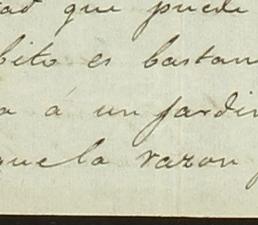 ad que puede
bito es bastan
a á un jardin
que la razon